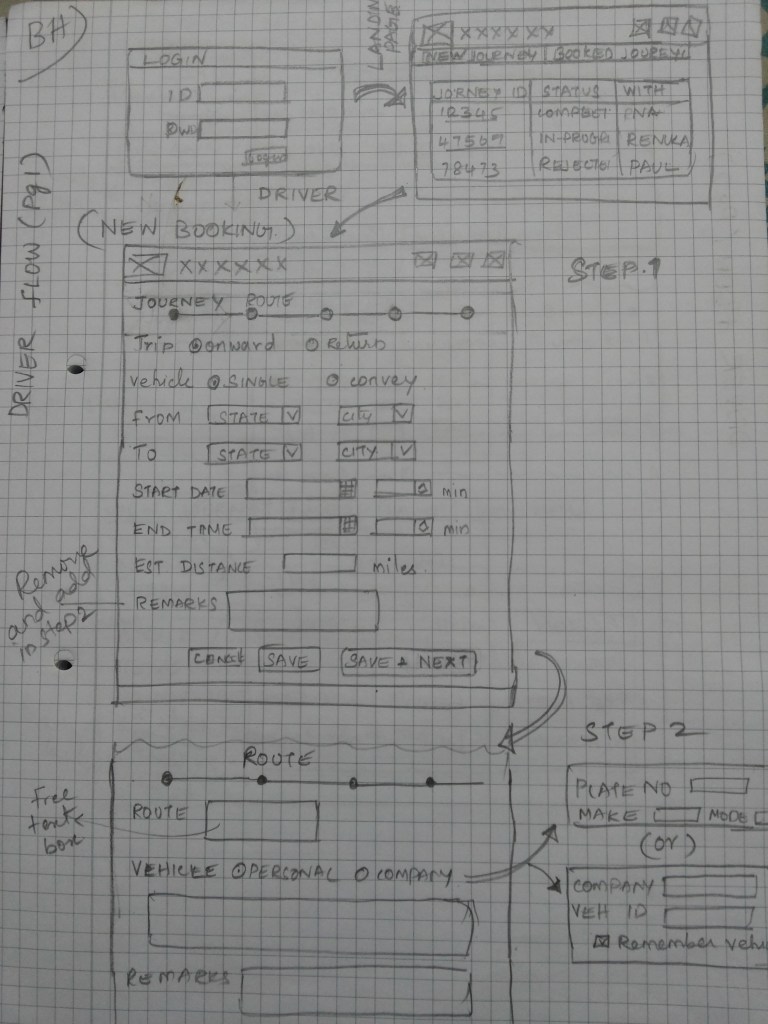 BH
LANDING PAGE
LOGIN
ID
PWD
XXXXXX
NEW JOURNEY BOOKED
JORNEY ID STATUS WITH
12345
47567 IN-PROGR RENUKA
78473 REJECTE PAUL
DRIVER FLOW (Pg 1)
DRIVER
(NEW BOOKING)
STEP.1
XXXXXX
JOURNEY ROUTE
Trip onward Return
vehicle SINGLE convey
from STATE city
TO STATE CITY
START DATE min
END TIME min
EST DISTANCE miles.
REMARKS
Remove and add in step 2
SAVE SAVE & NEXT
STEP 2
ROUTE
free text box
ROUTE
VEHICLE PERSONAL COMPANY
REMARKS
PLATE NO
MAKE MODE
(or)
COMPANY
VEH ID
Remember vehi